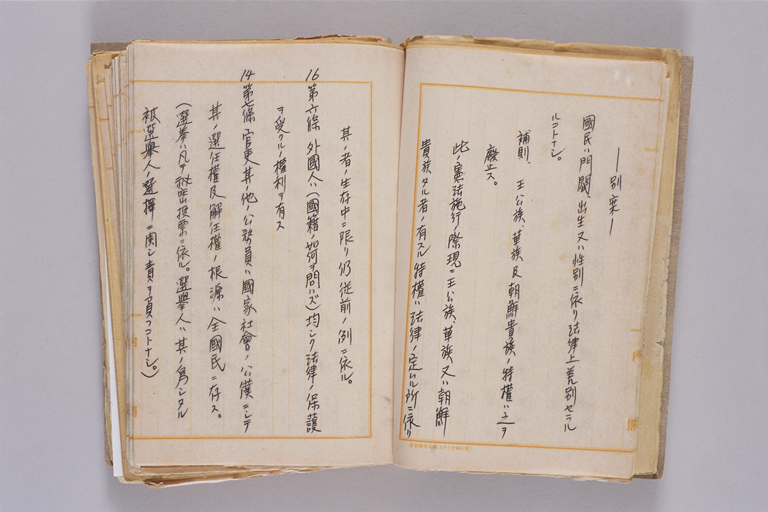 ―別案―
國民ハ門閥、出生又ハ性別ニ依リ法律上差別セラル
ルコトナシ。
補則、王公族、華族及朝鮮貴族ノ特權ハ之ヲ
廢止ス。
此ノ憲法施行ノ際現ニ王公族、華族又ハ朝鮮
貴族タル者ノ有スル特權ハ法律ノ定ムル所ニ依リ
其ノ者ノ生存中ニ限リ仍從前ノ例ニ依ル。
16 第六條 外國人ハ(國籍ノ如何ヲ問ハズ)均シク法律ノ保護
ヲ受クルノ權利ヲ有ス
14 第七條 官吏其ノ他ノ公務員ハ國家社會ノ公僕ニシテ
其ノ選任權及解任權ノ根源ハ全國民ニ存ス。
(選擧ハ凡テ秘密投票ニ依ル。選擧人ハ其ノ爲シタル
被選擧人ノ選擇ニ関シ責ヲ負フコトナシ。)